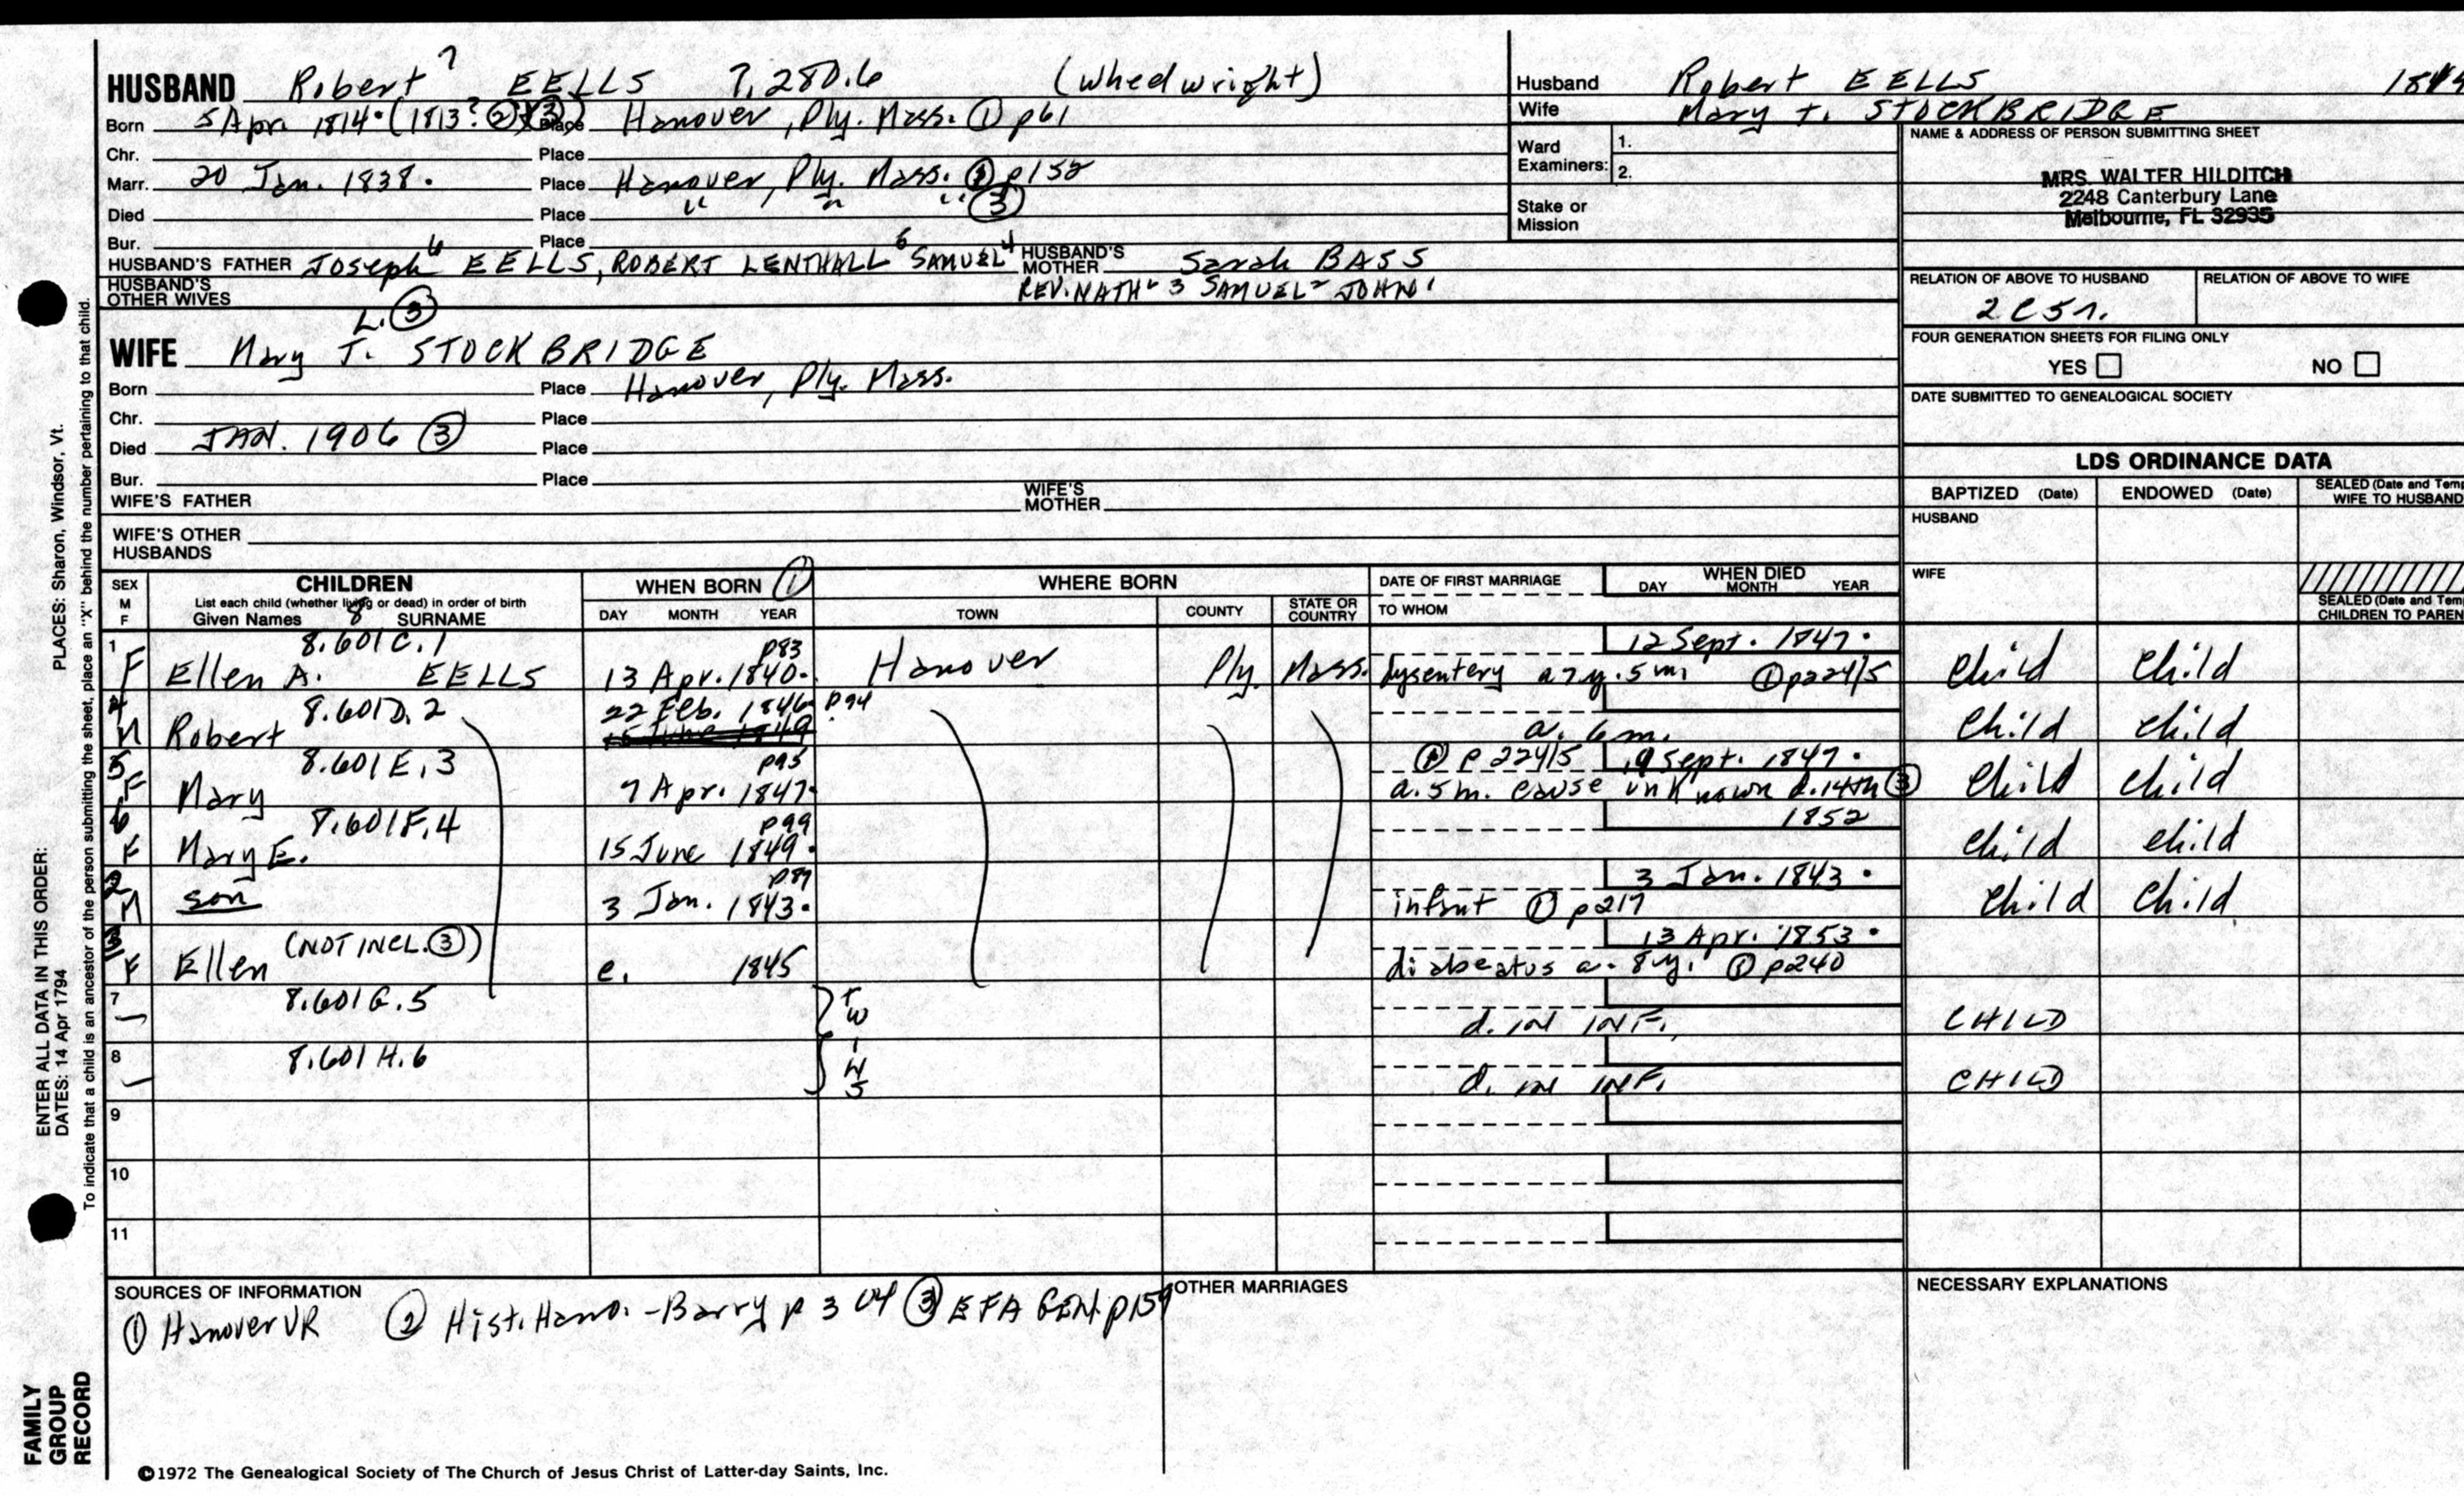 HUSBAND Robert 7 EELLS 7,280.6 (Wheelwright)
Born 5 Apr. 1814. (1813? ② ③) Place Hanover, Ply. Mass. ① p61
Chr. Place
Marr. 20 Jan. 1838. Place Hanover, Ply. Mass. ① p152
Died Place " " " ③
Bur. Place
HUSBAND'S FATHER Joseph 6 EELLS, ROBERT LENTHALL SAMUEL 4 HUSBAND'S MOTHER Sarah BASS
HUSBAND'S OTHER WIVES REV. NATH 3 SAMUEL 2 JOHN 1
L. ③
WIFE Mary T. STOCKBRIDGE
Born Place Hanover, Ply. Mass.
Chr. Place
Died JAN. 1906 ③ Place
Bur. Place
WIFE'S FATHER WIFE'S MOTHER
WIFE'S OTHER HUSBANDS
Husband Robert EELLS
Wife Mary T. STOCKBRIDGE
Ward Examiners: 1.
2.
Stake or Mission
NAME & ADDRESS OF PERSON SUBMITTING SHEET
MRS. WALTER HILDITCH
2248 Canterbury Lane
Melbourne, FL 32935
RELATION OF ABOVE TO HUSBAND RELATION OF ABOVE TO WIFE
2C5r.
FOUR GENERATION SHEETS FOR FILING ONLY
YES NO
DATE SUBMITTED TO GENEALOGICAL SOCIETY
LDS ORDINANCE DATA
BAPTIZED (Date) ENDOWED (Date) SEALED (Date and Temp
WIFE TO HUSBAND
HUSBAND
WIFE
SEALED (Date and Tem
CHILDREN TO PAREN
SEX M F CHILDREN WHEN BORN ① WHERE BORN DATE OF FIRST MARRIAGE WHEN DIED
List each child (whether living or dead) in order of birth
Given Names 8 SURNAME DAY MONTH YEAR TOWN COUNTY STATE OR COUNTRY TO WHOM DAY MONTH YEAR
1 8.601C.1 p83 12 Sept. 1847.
F Ellen A. EELLS 13 Apr. 1840. Hanover Ply. Mass. dysentery a 7 y. 5 m. ① p224/5 Child Child
4 8.601D.2 22 Feb. 1846. p94
M Robert 15 June 1849 a. 6 m. Child Child
5 8.601E.3 p95 ① p224/5 9 Sept. 1847.
F Mary 7 Apr. 1847. a. 5 m. cause unknown d. 14th ③ Child Child
6 8.601F.4 p99 1852
F Mary E. 15 June 1849. Child Child
2 p89 3 Jan. 1843.
M son 3 Jan. 1843. infant ① p217 Child Child
3 (NOT INCL. ③) 13 Apr. 1853.
F Ellen c. 1845 diabeatus a. 8 y. ① p240
7 8.601G.5 TWINS d. IN INF. CHILD
8 8.601H.6 d. IN INF. CHILD
9
10
11
SOURCES OF INFORMATION OTHER MARRIAGES NECESSARY EXPLANATIONS
① Hanover VR ② Hist. Hano. - Barry p 304 ③ EFA GEN. p159
©1972 The Genealogical Society of The Church of Jesus Christ of Latter-day Saints, Inc.
FAMILY GROUP RECORD
ENTER ALL DATA IN THIS ORDER: PLACES: Sharon, Windsor, Vt.
DATES: 14 Apr 1794
To indicate that a child is an ancestor of the person submitting the sheet, place an "X" behind the number pertaining to that child.